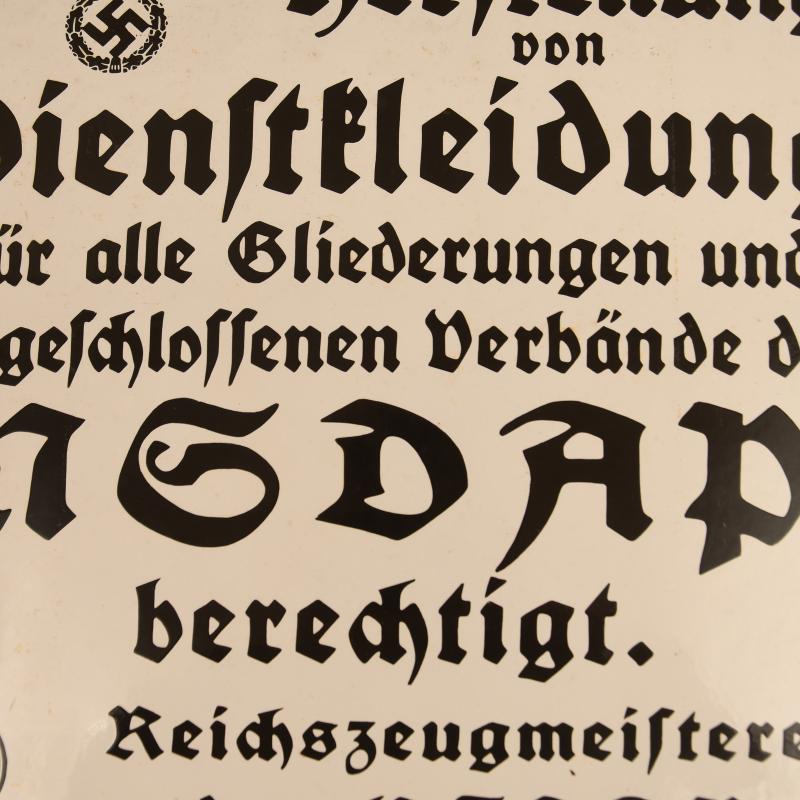 Herstellung
von
Dienstkleidung
ür alle Gliederungen und
geschlossenen Verbände d
NSDAP
berechtigt.
Reichszeugmeistere